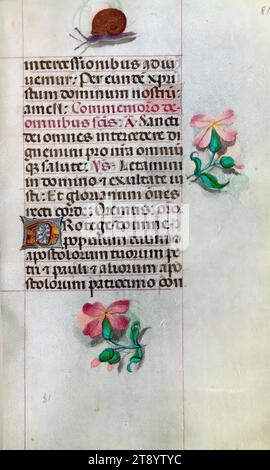 81
intercessionibus adiu
uemur: Per eundē xpri
stum dominum nostrū:
amen: Commemoro de
omnibus scīs: A: Sancti
dei omnes intercedere di
gnemini pro nr̄a omniū
q; salute: Vs: Letamini
in domino et exultate iu
sti: Et gloriamini ōnes
recti corde: Oremus: oro.
Protege domine
populum tuum et
apostolorum tuorum pe
tri et pauli et aliorum ap
ostolorum patrocinio con
81
alamy - 2T8YTYC